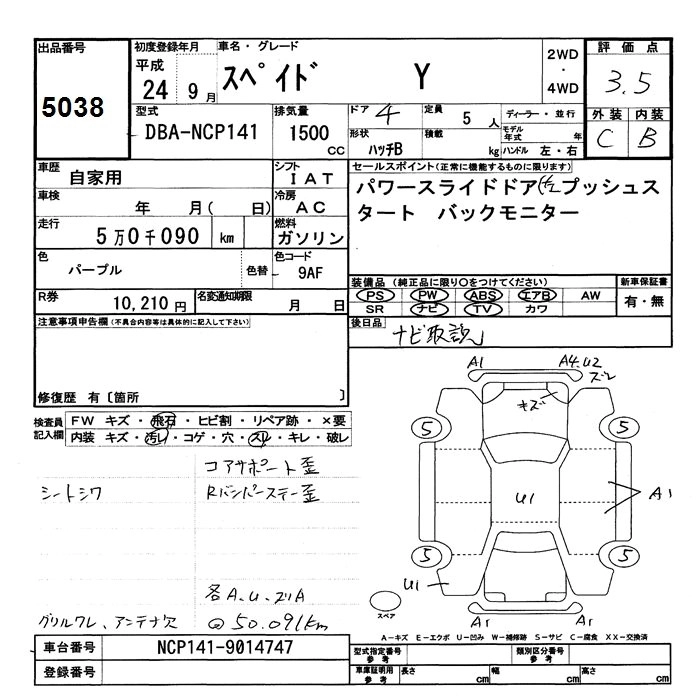 出品番号
5038
初度登録年月 車名・グレード
平成
24 9月 スペイド Y
2WD
・
4WD
評価点
3.5
外装 内装
C B
型式 排気量 ドア 4 定員 5人 ディーラー・並行
DBA-NCP141 1500 CC
形状 ハッチB 積載 kg モデル年式 年
ハンドル 左・右
車歴 自家用
シフト IAT
車検 年 月( 日)
冷房 AC
走行 5万0千090 km
燃料 ガソリン
色 パープル 色替
色コード 9AF
R券 10,210円 名変通知期限 月 日
セールスポイント(正常に機能するものに限ります)
パワースライドドア(左)プッシュス
タート バックモニター
装備品(純正品に限り○をつけてください)
PS PW ABS エアB AW
SR ナビ TV カワ
新車保証書
有・無
後日品 ナビ取説
注意事項申告欄(不具合内容等は具体的に記入して下さい)
修復歴 有〔箇所 〕
検査員記入欄
FW キズ・飛石・ヒビ割・リペア跡・×要
内装 キズ・汚レ・コゲ・穴・スレ・キレ・破レ
コアサポート歪
シートシワ
Rバンパーステー歪
各A.U.ズリA
グリルワレ、アンテナ欠
@50.091km
A1 A4.U2
ズレ
キズ
5 5
U1
A1
5 5
U1
A1 A1
スペア
A-キズ E-エクボ U-凹み W-補修跡 S-サビ C-腐食 XX-交換済
車台番号 NCP141-9014747
登録番号
型式指定番号 参考
類別区分番号 参考
車庫証明用 参考 長さ cm 幅 cm 高さ cm